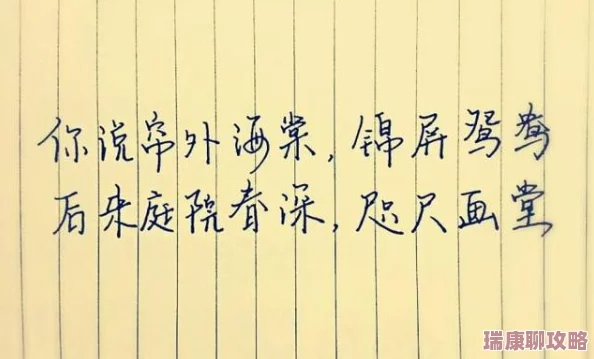 你说帘外海棠,锦屏鸳鸯
后来庭院春深,咫尺画堂
瑞康聊攻略